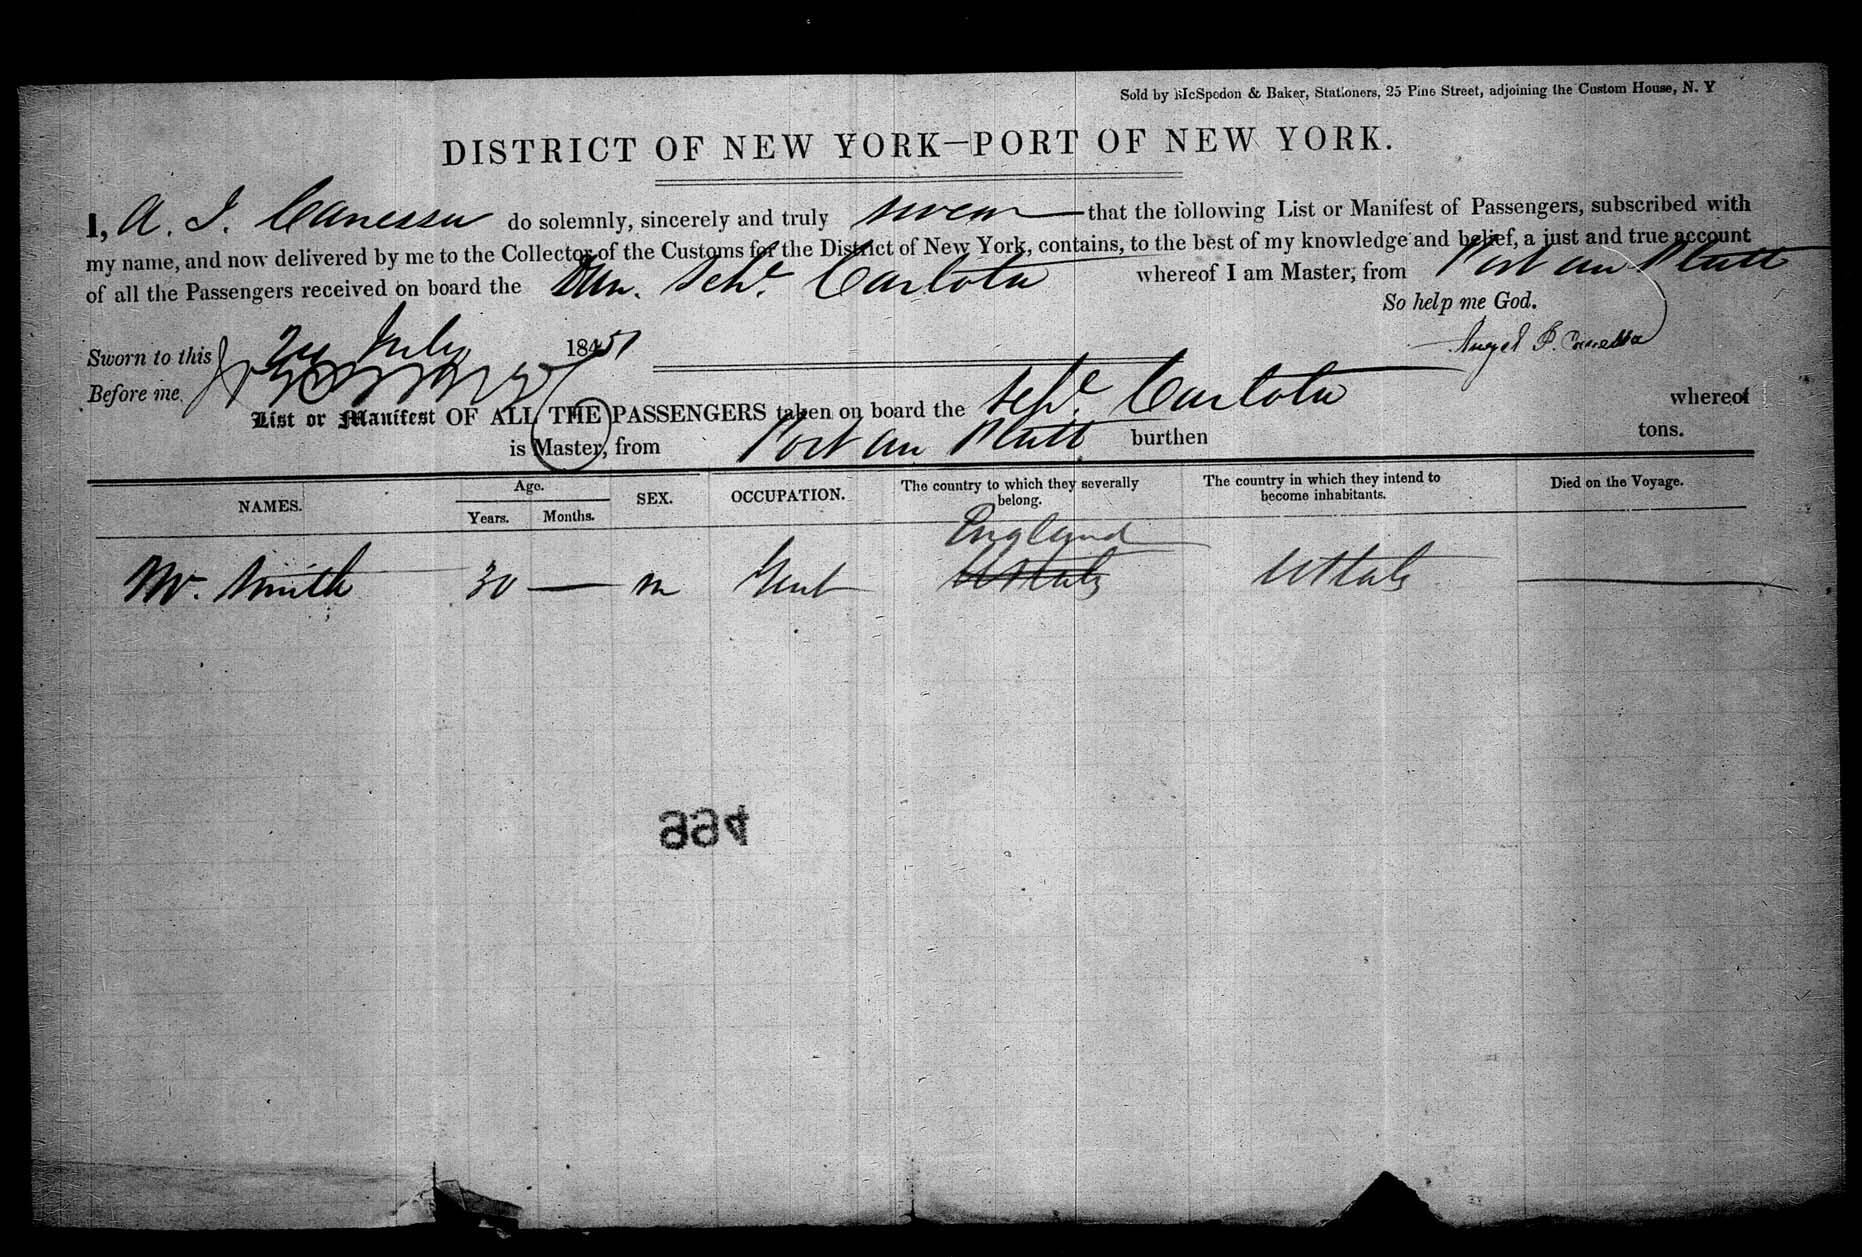 Sold by McSpedon & Baker, Stationers, 25 Pine Street, adjoining the Custom House, N. Y
DISTRICT OF NEW YORK—PORT OF NEW YORK.
I, A. J. Canessa do solemnly, sincerely and truly swear that the following List or Manifest of Passengers, subscribed with
my name, and now delivered by me to the Collector of the Customs for the District of New York, contains, to the best of my knowledge and belief, a just and true account
of all the Passengers received on board the Schr. Carlota whereof I am Master, from Port au Platt
So help me God.
Sworn to this July 1851 Angel P. Canessa
Before me
List or Manifest OF ALL THE PASSENGERS taken on board the Schr. Carlota whereof
is Master, from Port au Platt burthen tons.
NAMES. Age. Years. Months. SEX. OCCUPATION. The country to which they severally belong. The country in which they intend to become inhabitants. Died on the Voyage.
England
Mr. Smith 30 — m Gent U States U States —
994